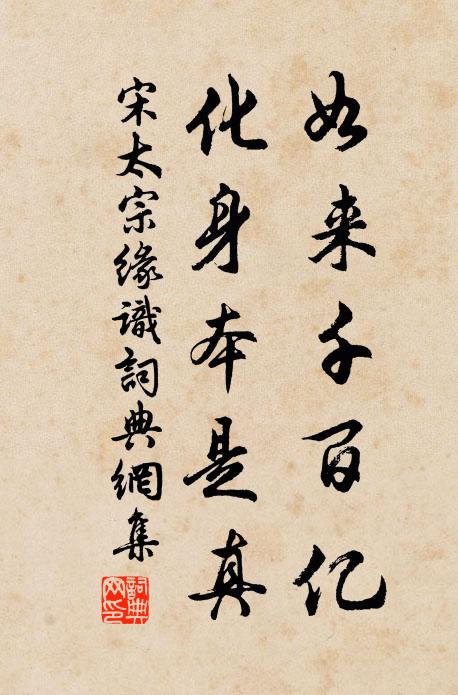 如来千百亿
化身本是真
宋太宗缘識詞典網集
詞典网印